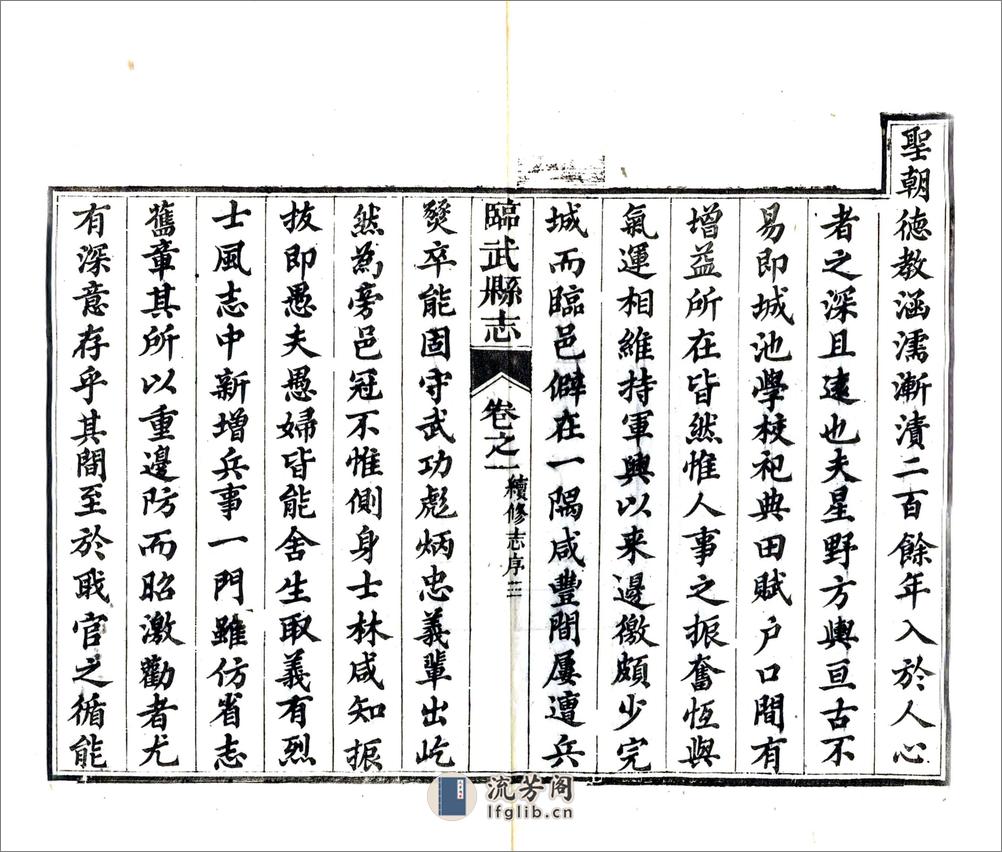 聖朝德教涵濡漸漬二百餘年入於人心
者之深且遠也夫星野方輿亘古不
易即城池學校祀典田賦户口間有
增益所在皆然惟人事之振奮恆與
氣運相維持軍興以来邊徼頗少完
城而臨邑僻在一隅咸豐間屢遭兵
臨武縣志
卷之一
續修志序
三
燹卒能固守武功彪炳忠義輩出屹
然為旁邑冠不惟側身士林咸知振
拔即愚夫愚婦皆能舍生取義有烈
士風志中新增兵事一門雖仿省志
舊章其所以重邊防而昭激勸者尤
有深意存乎其間至於戢官之循能
流芳阁
lfglib.cn